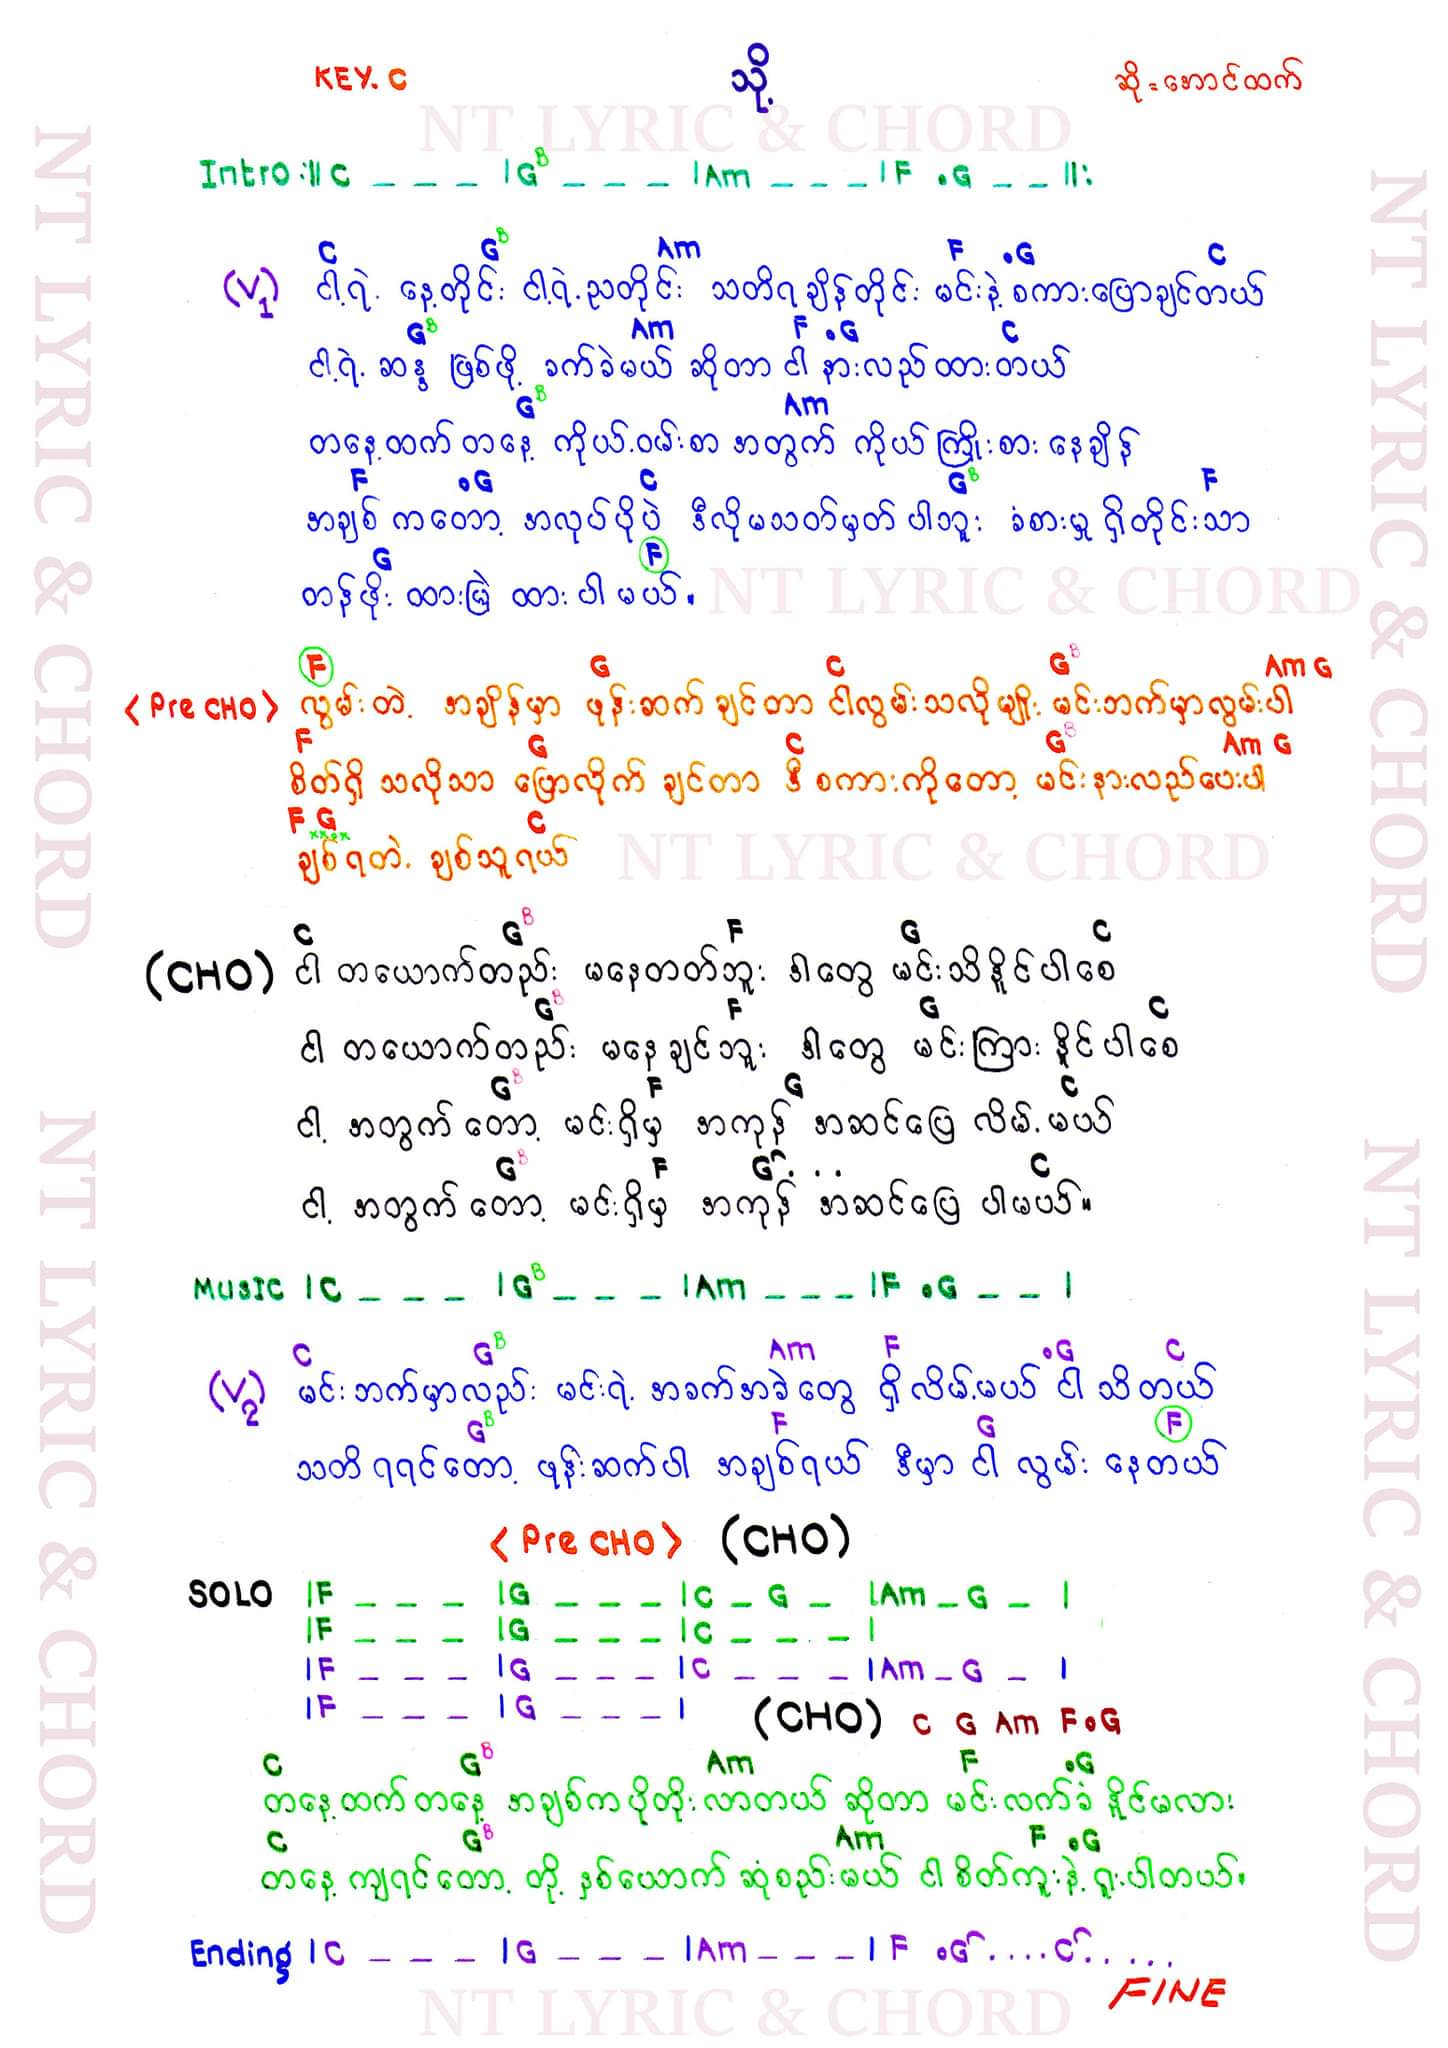 KEY. C
သို့
ဆို = အောင်ထက်
NT LYRIC & CHORD
Intro :|| C _ _ _ | G B _ _ _ | Am _ _ _ | F . G _ _ ||:
C G B Am F . G C
(V1) ငါ့ရဲ့ နေ့တိုင်း ငါ့ရဲ့ညတိုင်း သတိရချိန်တိုင်း မင်းနဲ့ စကားပြောချင်တယ်
G B Am F . G C
ငါ့ရဲ့ ဆန္ဒ ဖြစ်ဖို့ ခက်ခဲမယ် ဆိုတာ ငါ နားလည်ထားတယ်
G B Am
တနေ့ထက်တနေ့ ကိုယ့်ဝမ်းစာ အတွက် ကိုယ်ကြိုးစား နေချိန်
F . G C G B F
အချစ် ကတော့ အလုပ်ပိုပဲ ဒီလိုမသတ်မှတ် ပါဘူး ခံစားမှု ရှိတိုင်းသာ
G F
တန်ဖိုး ထားမြဲ ထားပါ မယ်။
NT LYRIC & CHORD
F G C G B Am G
< Pre CHO > လွမ်းတဲ့ အချိန်မှာ ဖုန်းဆက်ချင်တာ ငါလွမ်းသလိုမျိုး မင်းဘက်မှာလွမ်းပါ
F G C G B Am G
စိတ်ရှိ သလိုသာ ပြောလိုက် ချင်တာ ဒီ စကားကိုတော့ မင်းနားလည်ပေးပါ
F G C
ချစ်ရတဲ့ ချစ်သူရယ်
NT LYRIC & CHORD
C G B F G C
(CHO) ငါ တယောက်တည်း မနေတတ်ဘူး ဒါတွေ မင်းသိနိုင်ပါစေ
G B F G C
ငါ တယောက်တည်း မနေချင်ဘူး ဒါတွေ မင်းကြားနိုင်ပါစေ
G B F G C
ငါ့ အတွက်တော့ မင်းရှိမှ အကုန် အဆင်ပြေ လိမ့်မယ်
G B F G . . . C
ငါ့ အတွက်တော့ မင်းရှိမှ အကုန် အဆင်ပြေ ပါမယ်။
Music | C _ _ _ | G B _ _ _ | Am _ _ _ | F . G _ _ |
C G B Am F . G C
(V2) မင်းဘက်မှာလည်း မင်းရဲ့ အခက်အခဲတွေ ရှိလိမ့်မယ် ငါ သိတယ်
G B F G F
သတိရရင်တော့ ဖုန်းဆက်ပါ အချစ်ရယ် ဒီမှာ ငါ လွမ်း နေတယ်
< Pre CHO > (CHO)
SOLO | F _ _ _ | G _ _ _ | C _ G _ | Am _ G _ |
| F _ _ _ | G _ _ _ | C _ _ _ |
| F _ _ _ | G _ _ _ | C _ _ _ | Am _ G _ |
| F _ _ _ | G _ _ _ |
(CHO) C G Am F . G
C G B Am F . G
တနေ့ထက်တနေ့ အချစ်ကပိုတိုးလာတယ် ဆိုတာ မင်းလက်ခံ နိုင်မလား
C G B Am F . G
တနေ့ ကျရင်တော့ တို့ နှစ်ယောက် ဆုံစည်းမယ် ငါ စိတ်ကူးနဲ့ ရူးပါတယ်။
Ending | C _ _ _ | G _ _ _ | Am _ _ _ | F . G .... C .....
FINE
NT LYRIC & CHORD
NT LYRIC & CHORD
NT LYRIC & CHORD
NT LYRIC & CHORD
NT LYRIC & CHORD